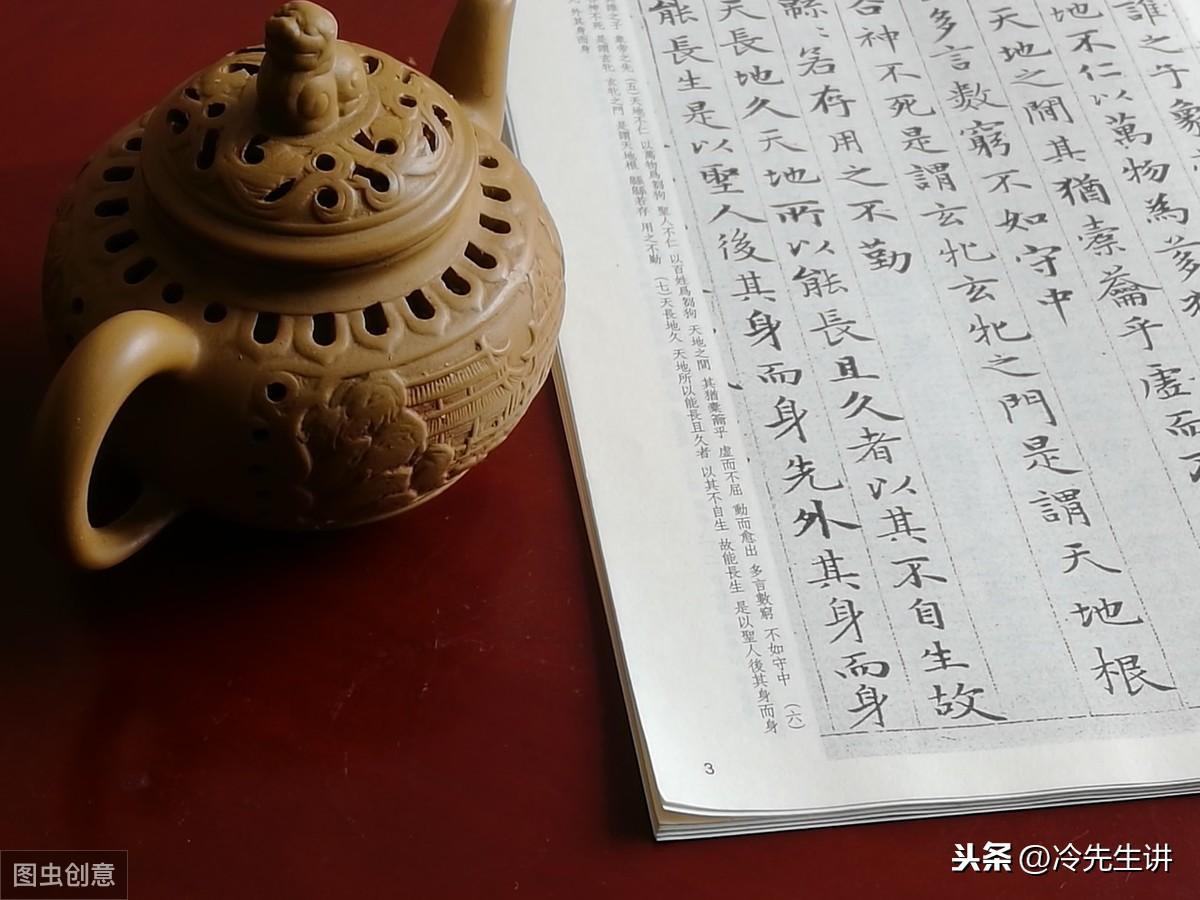 誰之子象
地不仁以萬物為芻狗
天地之間其猶橐籥乎虛而不
多言數窮不如守中
谷神不死是謂玄牝玄牝之門是謂天地根
緜〻若存用之不勤
天長地久天地所以能長且久者以其不自生故
能長生是以聖人後其身而身先外其身而身
之子 象帝之先 (五)天地不仁 以萬物爲芻狗 聖人不仁 以百姓爲芻狗 天地之間 其猶橐籥乎 虛而不屈 動而愈出 多言數窮 不如守中 (六)
神不死 是謂玄牝 玄牝之門 是謂天地根 緜緜若存 用之不勤 (七)天長地久 天地所以能長且久者 以其不自生 故能長生 是以聖人後其身而身
外其身而身
3
图虫创意
头条 @冷先生讲